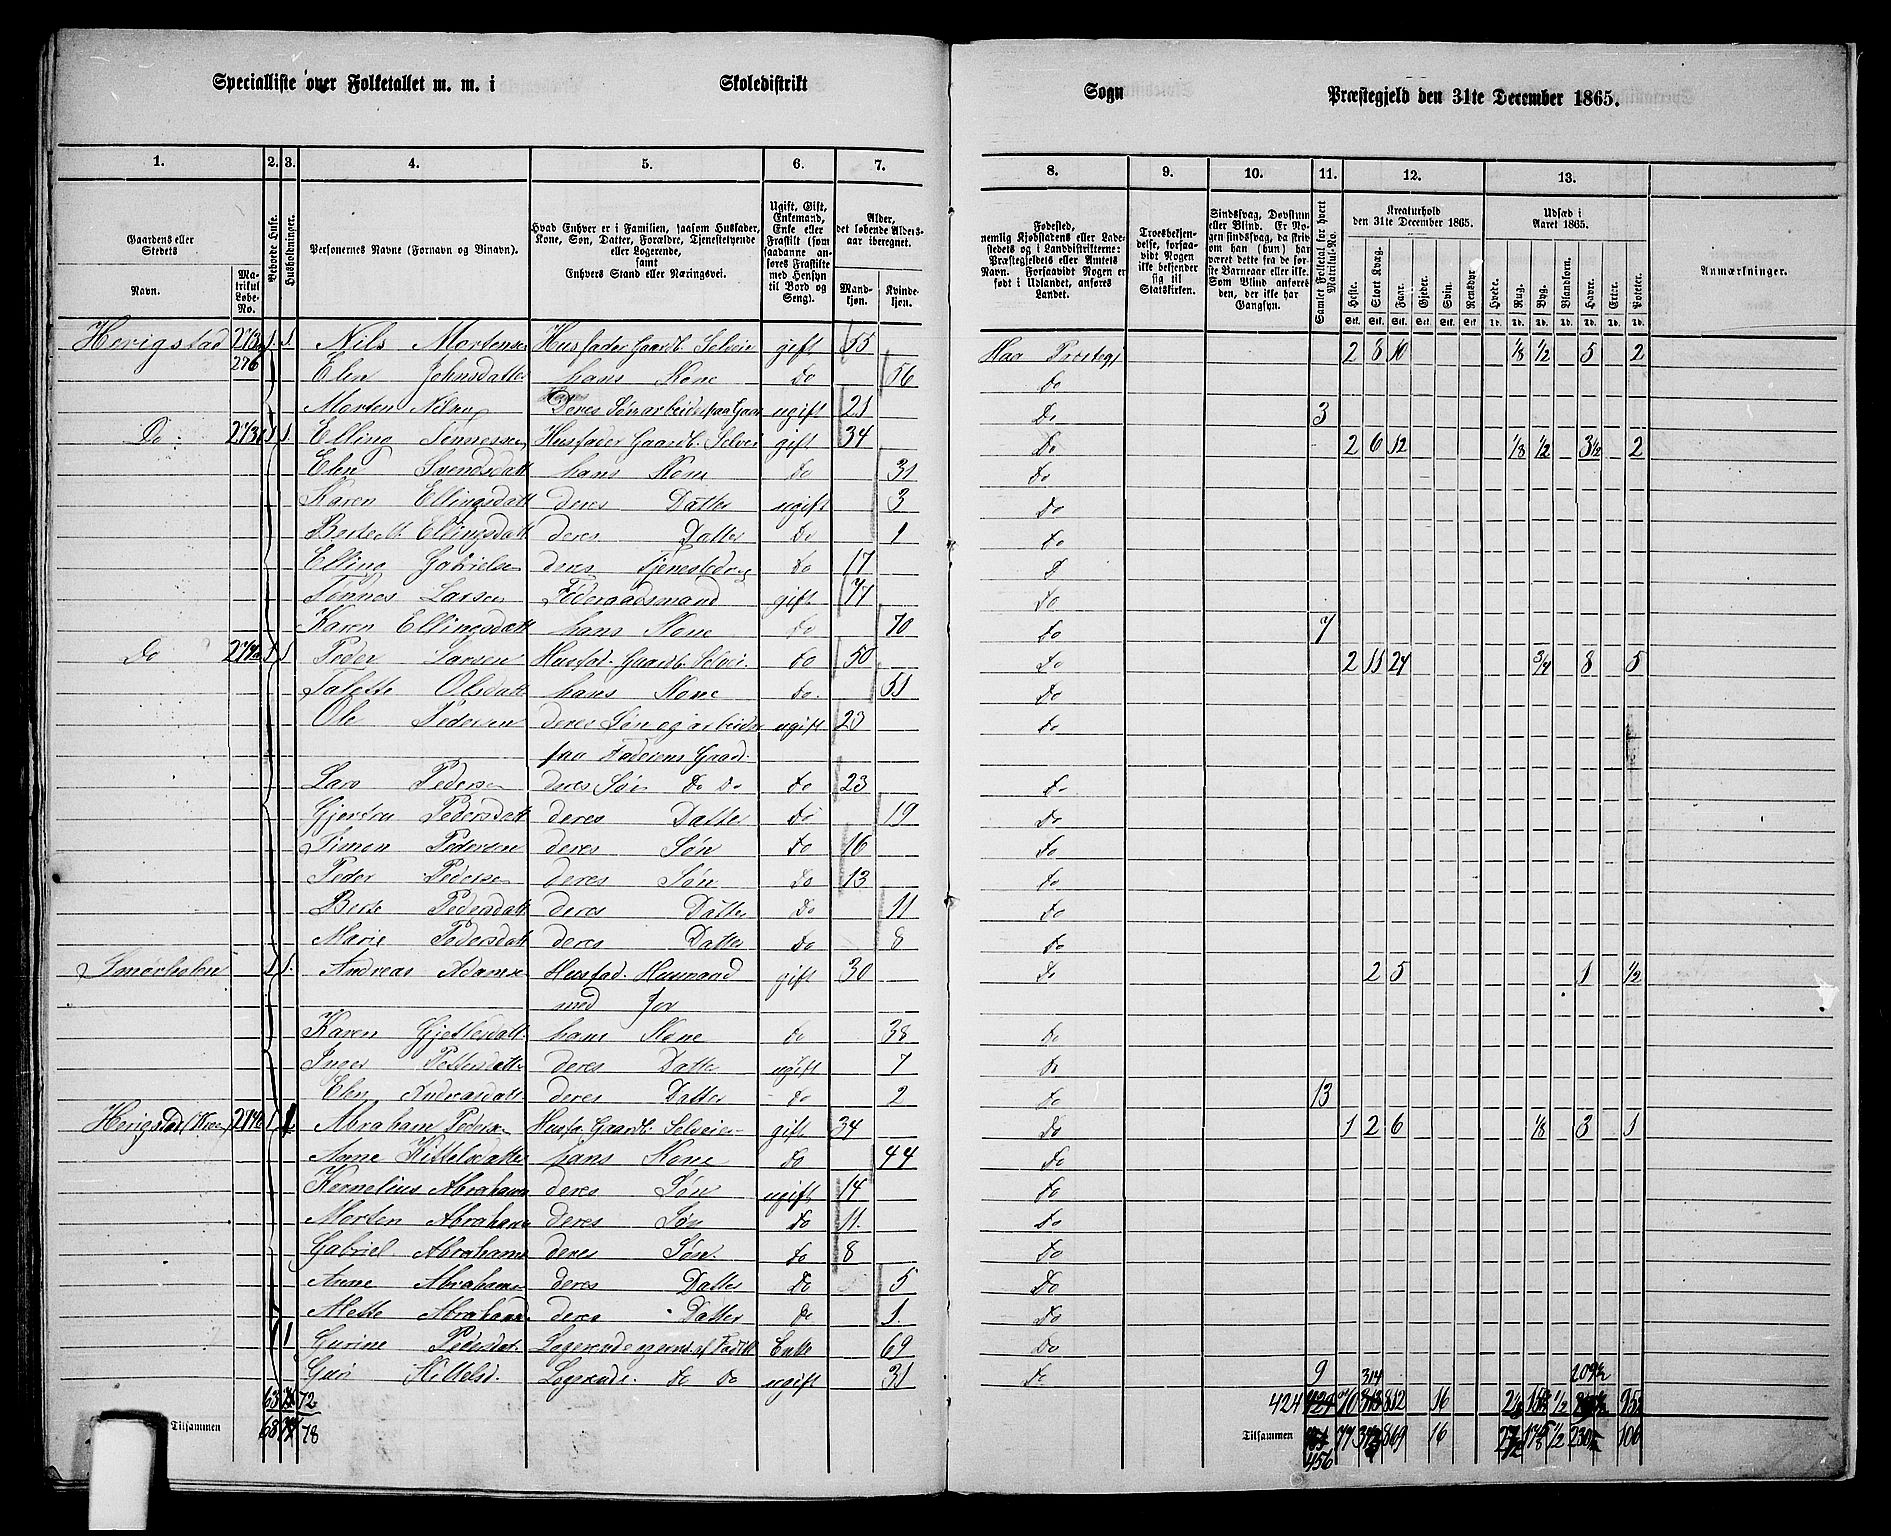 Specialliste over Folketallet m. m. i Skoledistrikt Sogn Præstegjeld den 31te December 1865.
1. 2. 3. 4. 5. 6. 7. 8. 9. 10. 11. 12. 13.
Gaardens eller Stedets
Navn.
Matrikul Løbe-No.
Beboede Huse.
Husholdninger.
Personernes Navne (Fornavn og Binavn).
Hvad Enhver er i Familien, saasom Husfader, Kone, Søn, Datter, Forældre, Tjenestetyende eller Logerende, samt Enhvers Stand eller Næringsvei.
Ugift, Gift, Enkemand, Enke eller Fraskilt (som saadanne anføres Fraskilte med Hensyn til Bord og Seng).
Alder, det løbende Alders-aar iberegnet.
Mand-kjøn.
Kvinde-kjøn.
Fødested, nemlig Kjøbstadens eller Ladestedets og i Landdistrikterne: Præstegjeldets eller Amtets Navn. Forsaavidt Nogen er født i Udlandet, anføres Landet.
Troesbekjendelse, forsaavidt Nogen ikke bekjender sig til Statskirken.
Sindssvag, Døvstum eller Blind. Er Nogen sindssvag, da skrives om han (hun) har været dette fra de første Barneaar eller ikke. Som Blind anføres den, der ikke har Gangsyn.
Samlet Folketal for hvert Matrikul-No.
Kreaturhold den 31te December 1865.
Heste. Stort Kvæg. Faar. Gjeder. Svin. Rensdyr
Udsæd i Aaret 1865.
Hvede. Rug. Byg. Blandkorn. Havre. Erter. Poteter.
Anmærkninger.
Herigstad 273a 1 1 Nils Mortensen Husfader Gaardb. Selveier gift 55 Haa Præstegj 2 8 10 1/8 1/2 5 2
276 Elen Johnsdatter hans Kone Do 56 Do
Morten Nilsen Deres Søn arbeider paa Gaar ugift 21 Do 3
Do 273b 1 1 Elling Tønnessen Husfader Gaardb. Selvei gift 34 Do 2 6 12 1/8 1/2 3 1/2 2
Elen Svendsdatt hans Kone Do 31 Do
Karen Ellingsdatt deres Datter ugift 3 Do
Ellingsdatt deres Datter Do 1 Do
Elling Gabrielsen deres Do 17 D
Tønnes Larsen Føderaadsmand gift 77 Do
Karen Ellingsdatt hans Kone Do 70 Do 7
Do 274a 1 1 Peder Larsen Husfad. Gaardb. Selvei. Do 50 Do 2 11 24 3/4 8 5
Talette Olsdatt hans Kone Do. 51 Do
Ole Pedersen deres Søn og arbeider ugift 23 Do
paa Faderens Gaard.
Lars Pedersen deres Søn Do Do Do 23 Do
Gjertru Pedersdatt deres Datter Do 19 Do
Simon Pedersen deres Søn Do 16 Do
Peder Pedersen deres Søn Do 13 Do
Berte Pedersdatt deres Datter Do 11 Do
Marie Pedersdatt deres Datter Do 8 Do
1 1. Andreas Adamsen Husfad. Husmand gift 30 Do 2 5 1 1/2
med Jor
Karen Gjetlesdatt. hans Kone Do 38 Do
Inger Pettersdatter deres Datte ugift 7 Do
Elen Andreasdatt deres Datter Do 2 Do 13
Herigstad 274b 1 1 Abraham Pedersen Husfa Gaardb. Selveier gift 34 Do 1 2 6 1/8 3 1
Anne Kittelsdatter hans Kone Do 44 Do
Kornelius Abrahams deres Søn ugift 14 Do
Morten Abrahams deres Søn Do 11. Do
Gabriel Abrahams deres Søn. Do 8 Do
Anne Abrahams deres Datter Do 5 Do
Mette Abrahamsd. deres Datter Do 1. Do
1 1 Gurine Pedersdat. Logerende Enke 69 Do
Guri Kittelsd. Logerende. Do Do ugift 31 Do 9
72 424 70 812 16
Tilsammen 78 Tilsammen 77 869 16 106
456